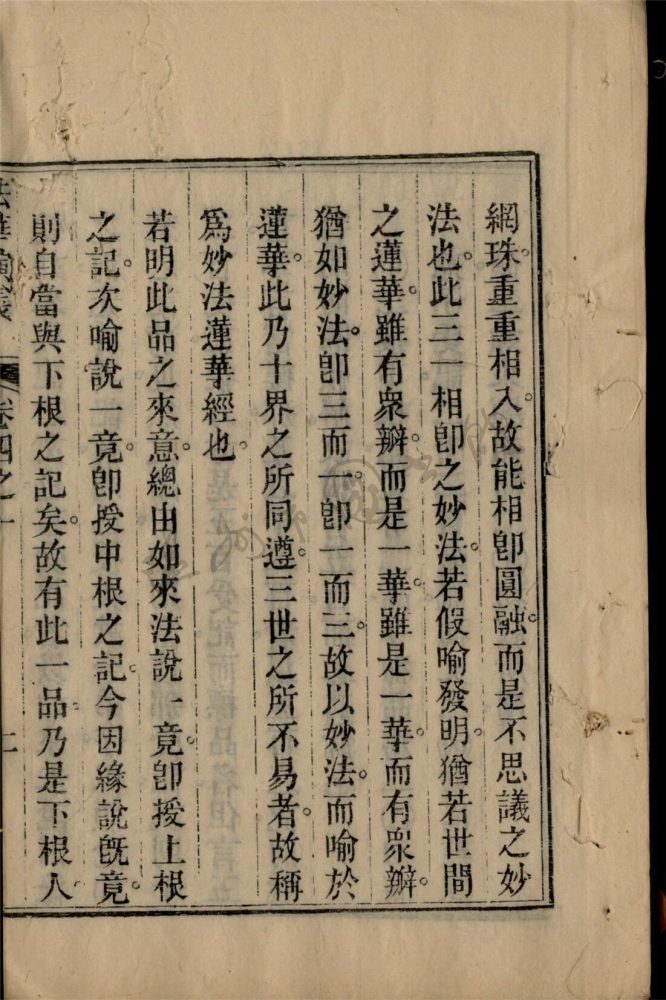 網珠重重相入故能相卽圓融。而是不思議之妙
法也。此三一相卽之妙法若假喻發明。猶若世間
之蓮華。雖有衆瓣。而是一華。雖是一華。而有衆瓣。
猶如妙法。卽三而一。卽一而三。故以妙法。而喻於
蓮華。此乃十界之所同遵。三世之所不易者。故稱
爲妙法蓮華經也。
若明此品之來意。總由如來法說一竟。卽授上根
之記。次喻說一竟。卽授中根之記。今因緣說旣竟。
則自當與下根之記矣。故有此一品。乃是下根人
法華演義
卷四之一